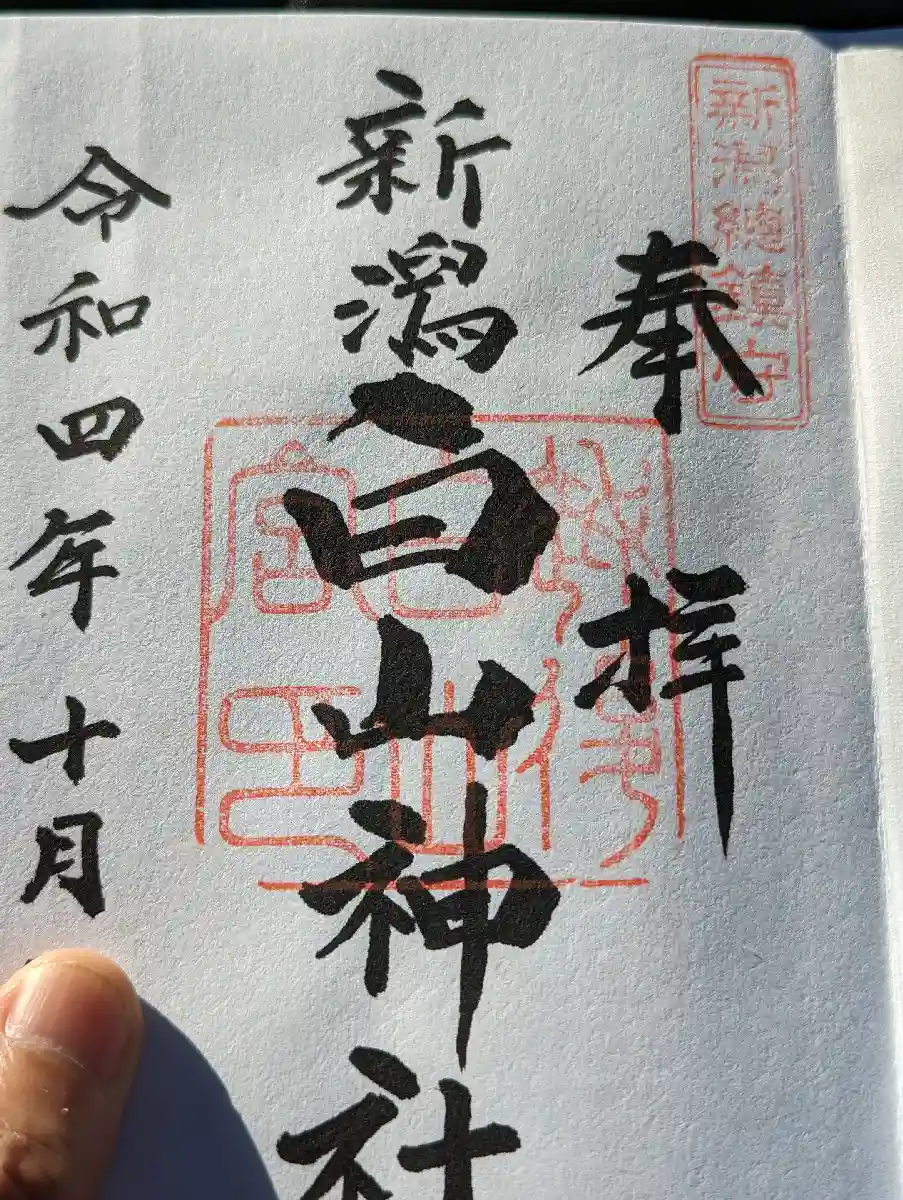 新潟總鎮守
奉拝
新潟白山神社
令和四年十月